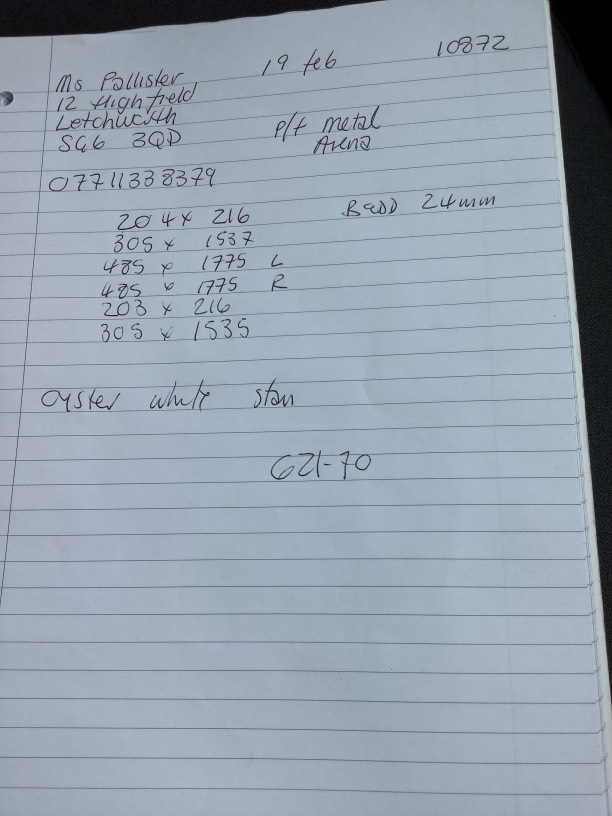 19 feb 10872
Ms Pallister
12 Highfield
Letchworth
SG6 3QD
P/f metal
Arena
07711338379
204 x 216 Bead 24mm
305 x 1537
485 x 1775 L
485 x 1775 R
203 x 216
305 x 1535
Oyster white stan
621-70